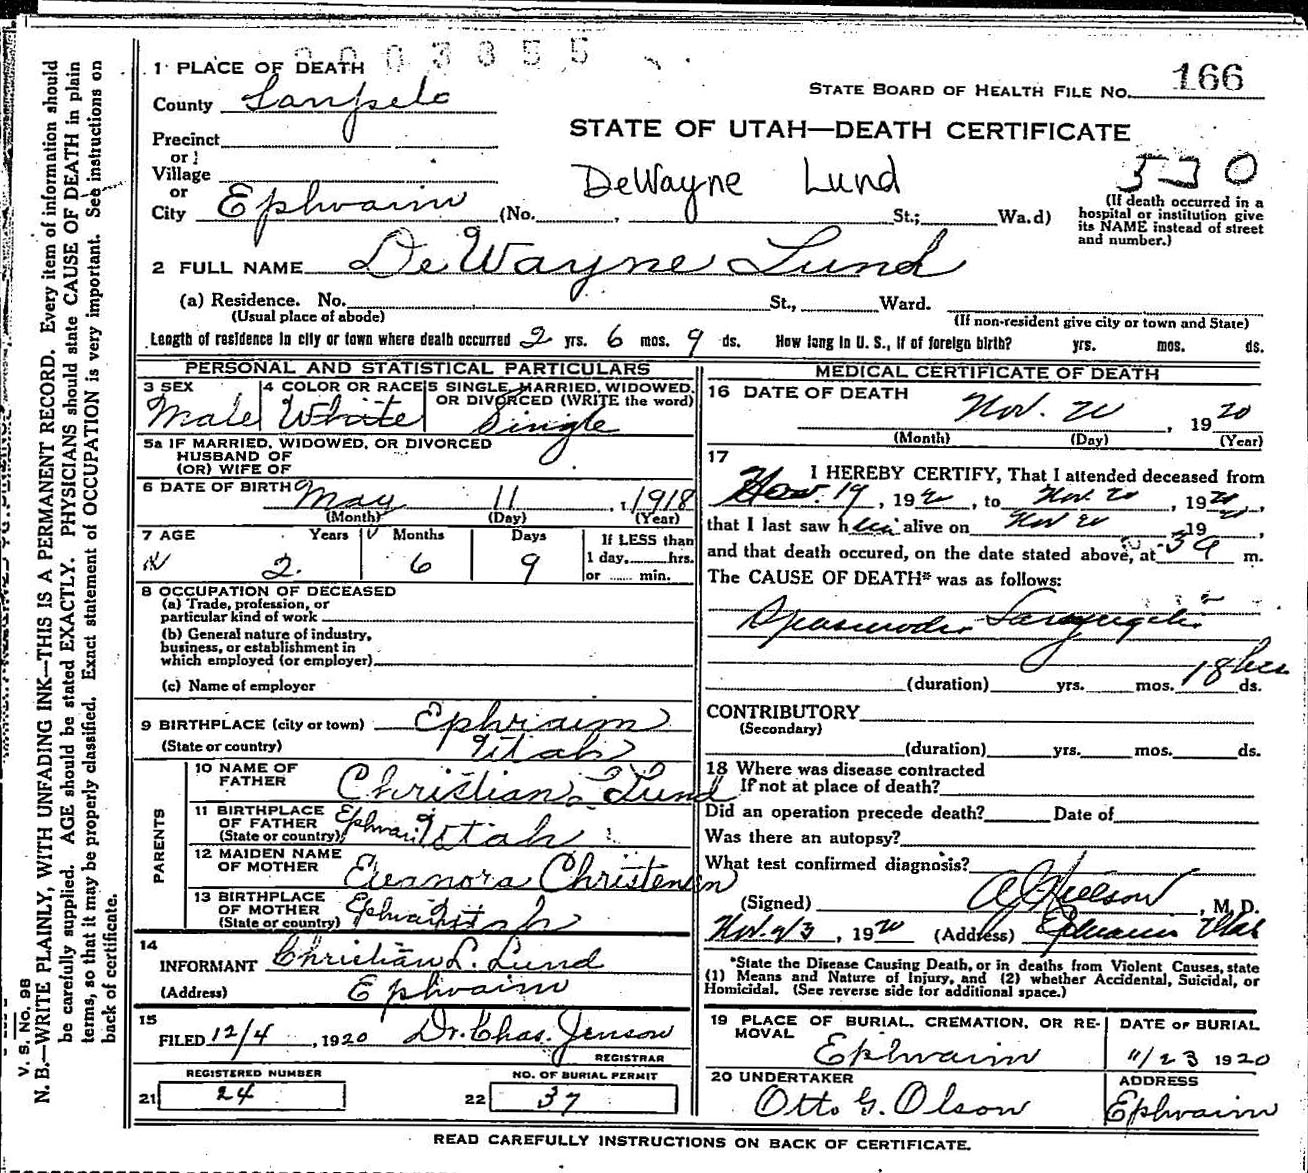 0003855
1 PLACE OF DEATH
County Sanpete
STATE BOARD OF HEALTH FILE No. 166
STATE OF UTAH—DEATH CERTIFICATE
Precinct
or
Village
or
City Ephraim (No. , St.; Wa.d)
DeWayne Lund
530
(If death occurred in a hospital or institution give its NAME instead of street and number.)
2 FULL NAME DeWayne Lund
(a) Residence. No. St., Ward.
(Usual place of abode) (If non-resident give city or town and State)
Length of residence in city or town where death occurred 2 yrs. 6 mos. 9 ds. How long in U. S., if of foreign birth? yrs. mos. ds.
PERSONAL AND STATISTICAL PARTICULARS
3 SEX Male
4 COLOR OR RACE White
5 SINGLE, MARRIED, WIDOWED, OR DIVORCED (WRITE the word) Single
5a IF MARRIED, WIDOWED, OR DIVORCED
HUSBAND OF
(OR) WIFE OF
6 DATE OF BIRTH May 11, 1918
(Month) (Day) (Year)
7 AGE Years Months Days If LESS than
2 6 9 1 day, hrs.
or ...... min.
8 OCCUPATION OF DECEASED
(a) Trade, profession, or
particular kind of work
(b) General nature of industry,
business, or establishment in
which employed (or employer)
(c) Name of employer
9 BIRTHPLACE (city or town) Ephraim
(State or country) Utah
PARENTS
10 NAME OF FATHER Christian L Lund
11 BIRTHPLACE OF FATHER Ephraim Utah
(State or country)
12 MAIDEN NAME OF MOTHER Eleanora Christensen
13 BIRTHPLACE OF MOTHER Ephraim Utah
(State or country)
14
INFORMANT Christian L. Lund
(Address) Ephraim
15
FILED 12/4, 1920 Dr. Chas. Jenson
REGISTRAR
REGISTERED NUMBER NO. OF BURIAL PERMIT
21 24 22 37
MEDICAL CERTIFICATE OF DEATH
16 DATE OF DEATH Nov. 20, 1920
(Month) (Day) (Year)
17
I HEREBY CERTIFY, That I attended deceased from
Nov. 19, 1920, to Nov. 20, 1920,
that I last saw him alive on Nov 20, 19 20,
and that death occured, on the date stated above, at 3 a m.
The CAUSE OF DEATH* was as follows:
Spasmodic Laryngitis
(duration) yrs. mos. 18 hrs ds.
CONTRIBUTORY
(Secondary)
(duration) yrs. mos. ds.
18 Where was disease contracted
If not at place of death?
Did an operation precede death? Date of
Was there an autopsy?
What test confirmed diagnosis?
(Signed) A J Nielson, M. D.
Nov. 2/3, 1920 (Address) Ephraim Utah
*State the Disease Causing Death, or in deaths from Violent Causes, state
(1) Means and Nature of Injury, and (2) whether Accidental, Suicidal, or
Homicidal. (See reverse side for additional space.)
19 PLACE OF BURIAL, CREMATION, OR RE-
MOVAL Ephraim
DATE OF BURIAL
11/23 1920
20 UNDERTAKER
Otto G. Olson
ADDRESS
Ephraim
READ CAREFULLY INSTRUCTIONS ON BACK OF CERTIFICATE.
V. S. No. 98
N. B.—WRITE PLAINLY, WITH UNFADING INK—THIS IS A PERMANENT RECORD. Every item of information should
be carefully supplied. AGE should be stated EXACTLY. PHYSICIANS should state CAUSE OF DEATH in plain
terms, so that it may be properly classified. Exact statement of OCCUPATION is very important. See instructions on
back of certificate.